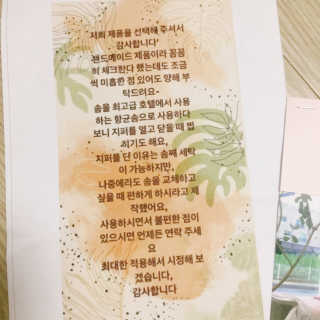 저희 제품을 선택해 주셔서
감사합니다'
핸드메이드 제품이라 꼼꼼
히 체크한다 했는데도 조금
씩 미흡한 점 있어도 양해 부
탁드려요~
솜을 최고급 호텔에서 사용
하는 항균솜으로 사용하다
보니 지퍼를 열고 닫을 때 씹
히기도 해요,
지퍼를 단 이유는 솜째 세탁
이 가능하지만,
나중에라도 솜을 교체하고
싶을 때 편하게 하시라고 제
작했어요,
사용하시면서 불편한 점이
있으시면 언제든 연락 주세
요
최대한 적용해서 시정해 보
겠습니다,
감사합니다